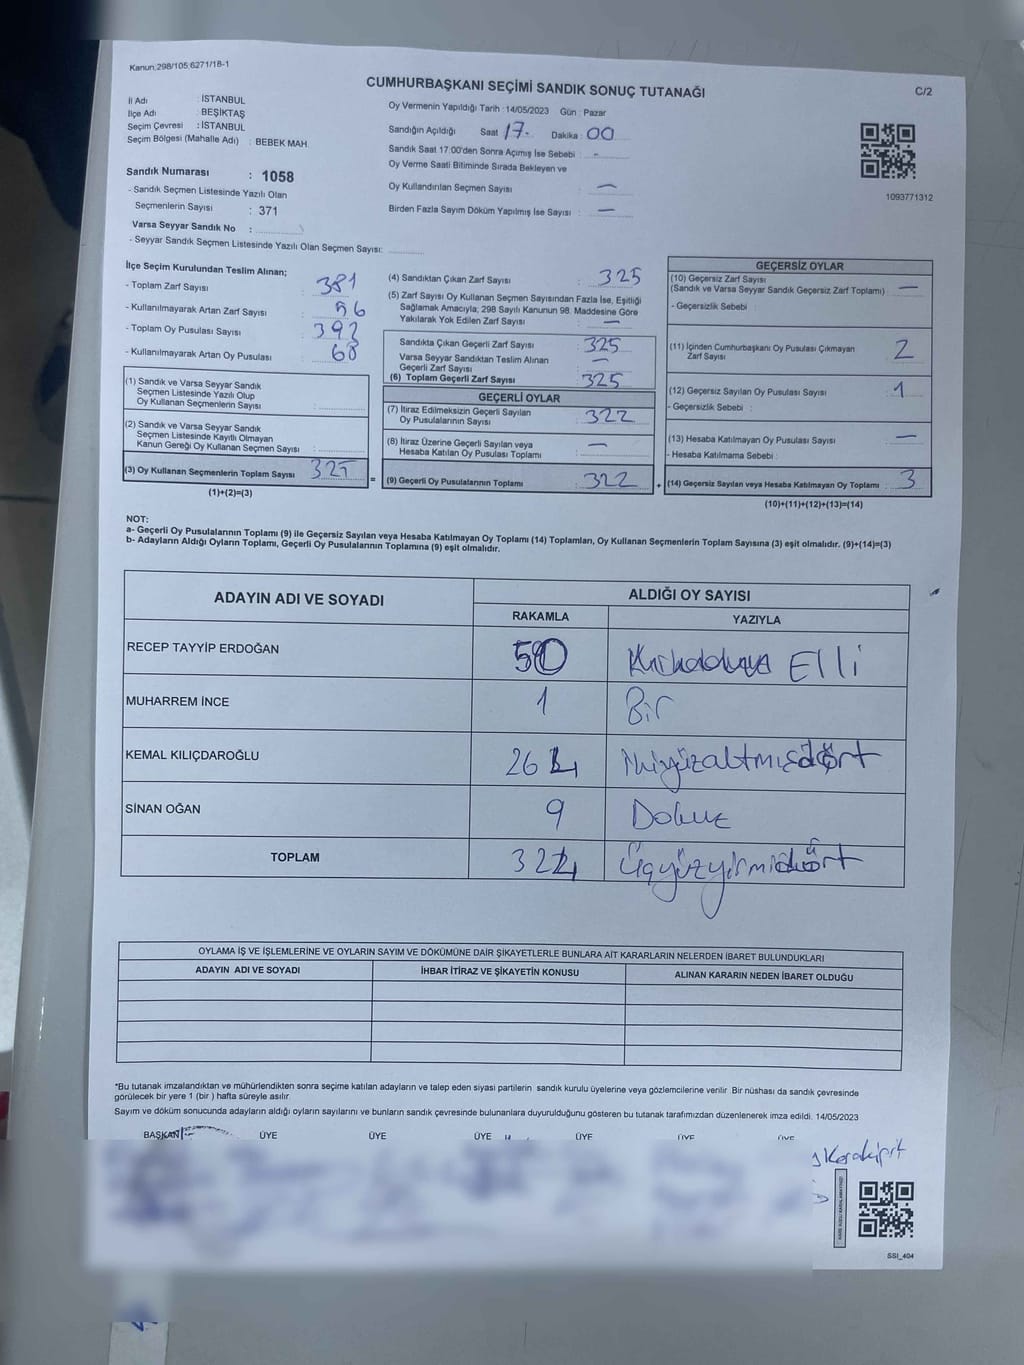 Kanun:298/105;6271/18-1
CUMHURBAŞKANI SEÇİMİ SANDIK SONUÇ TUTANAĞI
C/2
İl Adı : İSTANBUL
İlçe Adı : BEŞİKTAŞ
Seçim Çevresi : İSTANBUL
Seçim Bölgesi (Mahalle Adı) : BEBEK MAH.
Sandık Numarası : 1058
- Sandık Seçmen Listesinde Yazılı Olan
Seçmenlerin Sayısı : 371
Varsa Seyyar Sandık No :
- Seyyar Sandık Seçmen Listesinde Yazılı Olan Seçmen Sayısı:
Oy Vermenin Yapıldığı Tarih : 14/05/2023 Gün : Pazar
Sandığın Açıldığı Saat 17 Dakika : 00
Sandık Saat 17:00'den Sonra Açımış İse Sebebi : -
Oy Verme Saati Bitiminde Sırada Bekleyen ve
Oy Kullandırılan Seçmen Sayısı : -
Birden Fazla Sayım Döküm Yapılmış İse Sayısı : -
1093771312
İlçe Seçim Kurulundan Teslim Alınan;
- Toplam Zarf Sayısı : 381
- Kullanılmayarak Artan Zarf Sayısı : 56
- Toplam Oy Pusulası Sayısı : 392
- Kullanılmayarak Artan Oy Pusulası : 68
(1) Sandık ve Varsa Seyyar Sandık
Seçmen Listesinde Yazılı Olup
Oy Kullanan Seçmenlerin Sayısı :
(2) Sandık ve Varsa Seyyar Sandık
Seçmen Listesinde Kayıtlı Olmayan
Kanun Gereği Oy Kullanan Seçmen Sayısı :
(3) Oy Kullanan Seçmenlerin Toplam Sayısı : 325
(1)+(2)=(3)
(4) Sandıktan Çıkan Zarf Sayısı : 325
(5) Zarf Sayısı Oy Kullanan Seçmen Sayısından Fazla İse, Eşitliği
Sağlamak Amacıyla; 298 Sayılı Kanunun 98. Maddesine Göre
Yakılarak Yok Edilen Zarf Sayısı : -
Sandıkta Çıkan Geçerli Zarf Sayısı : 325
Varsa Seyyar Sandıktan Teslim Alınan
Geçerli Zarf Sayısı : -
(6) Toplam Geçerli Zarf Sayısı : 325
GEÇERLİ OYLAR
(7) İtiraz Edilmeksizin Geçerli Sayılan
Oy Pusulalarının Sayısı : 322
(8) İtiraz Üzerine Geçerli Sayılan veya
Hesaba Katılan Oy Pusulası Toplamı : -
= (9) Geçerli Oy Pusulalarının Toplamı : 322
GEÇERSİZ OYLAR
(10) Geçersiz Zarf Sayısı
(Sandık ve Varsa Seyyar Sandık Geçersiz Zarf Toplamı) : -
- Geçersizlik Sebebi :
(11) İçinden Cumhurbaşkanı Oy Pusulası Çıkmayan
Zarf Sayısı : 2
(12) Geçersiz Sayılan Oy Pusulası Sayısı : 1
- Geçersizlik Sebebi :
(13) Hesaba Katılmayan Oy Pusulası Sayısı : -
- Hesaba Katılmama Sebebi :
+ (14) Geçersiz Sayılan veya Hesaba Katılmayan Oy Toplamı : 3
(10)+(11)+(12)+(13)=(14)
NOT:
a- Geçerli Oy Pusulalarının Toplamı (9) ile Geçersiz Sayılan veya Hesaba Katılmayan Oy Toplamı (14) Toplamları, Oy Kullanan Seçmenlerin Toplam Sayısına (3) eşit olmalıdır. (9)+(14)=(3)
b- Adayların Aldığı Oyların Toplamı, Geçerli Oy Pusulalarının Toplamına (9) eşit olmalıdır.
ADAYIN ADI VE SOYADI ALDIĞI OY SAYISI
RAKAMLA YAZIYLA
RECEP TAYYİP ERDOĞAN 50 Elli
MUHARREM İNCE 1 Bir
KEMAL KILIÇDAROĞLU 264 İkiyüzaltmışdört
SİNAN OĞAN 9 Dokuz
TOPLAM 324 Üçyüzyirmidört
OYLAMA İŞ VE İŞLEMLERİNE VE OYLARIN SAYIM VE DÖKÜMÜNE DAİR ŞİKAYETLERLE BUNLARA AİT KARARLARIN NELERDEN İBARET BULUNDUKLARI
ADAYIN ADI VE SOYADI İHBAR İTİRAZ VE ŞİKAYETİN KONUSU ALINAN KARARIN NEDEN İBARET OLDUĞU
*Bu tutanak imzalandıktan ve mühürlendikten sonra seçime katılan adayların ve talep eden siyasi partilerin sandık kurulu üyelerine veya gözlemcilerine verilir. Bir nüshası da sandık çevresinde
görülecek bir yere 1 (bir) hafta süreyle asılır.
Sayım ve döküm sonucunda adayların aldığı oyların sayılarını ve bunların sandık çevresinde bulunanlara duyurulduğunu gösteren bu tutanak tarafımızdan düzenlenerek imza edildi. 14/05/2023
BAŞKAN ÜYE ÜYE ÜYE ÜYE ÜYE ÜYE
SSI_404